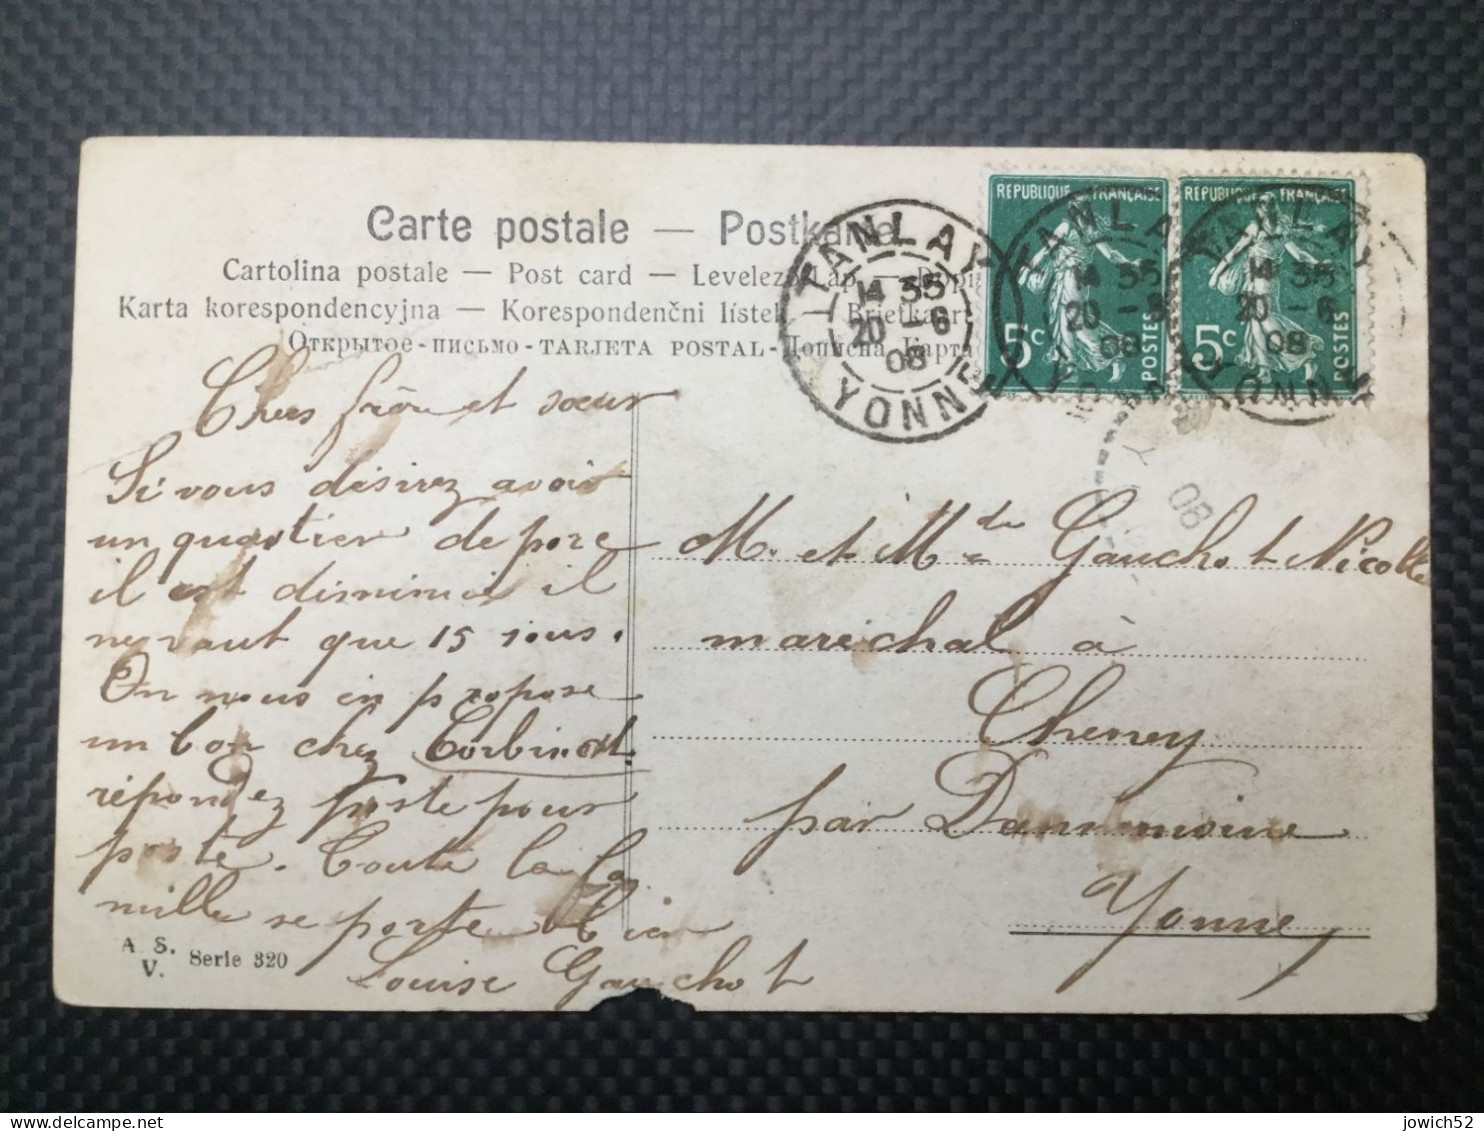 Carte postale — Postkarte
Cartolina postale — Post card — Levelező-Lap —
Karta korespondencyjna — Korespondenční lístek — Briefkaart
Открытое-письмо-TARJETA POSTAL-Дописна Карта
TANLAY
14 35
20 - 6
08
YONNE
REPUBLIQUE FRANÇAISE
5c
POSTES
TANLAY
14 35
20 - 6
08
YONNE
REPUBLIQUE FRANÇAISE
5c
POSTES
TANLAY
14 35
20 - 6
08
YONNE
Y
08
Chers frère et sœur
Si vous désirez avoir
un quartier de porc
il est diminué il
ne vaut que 15 sous.
On nous en propose
un bon chez Corbinat
répondez poste pour
poste. Toute la fa
mille se porte bien
Louise Gauchot
M. et Mde Gauchot Nicolle
maréchal à
Cheney
par Dannemoine
Yonne
A. S.
V.
Serie 320
jowich52